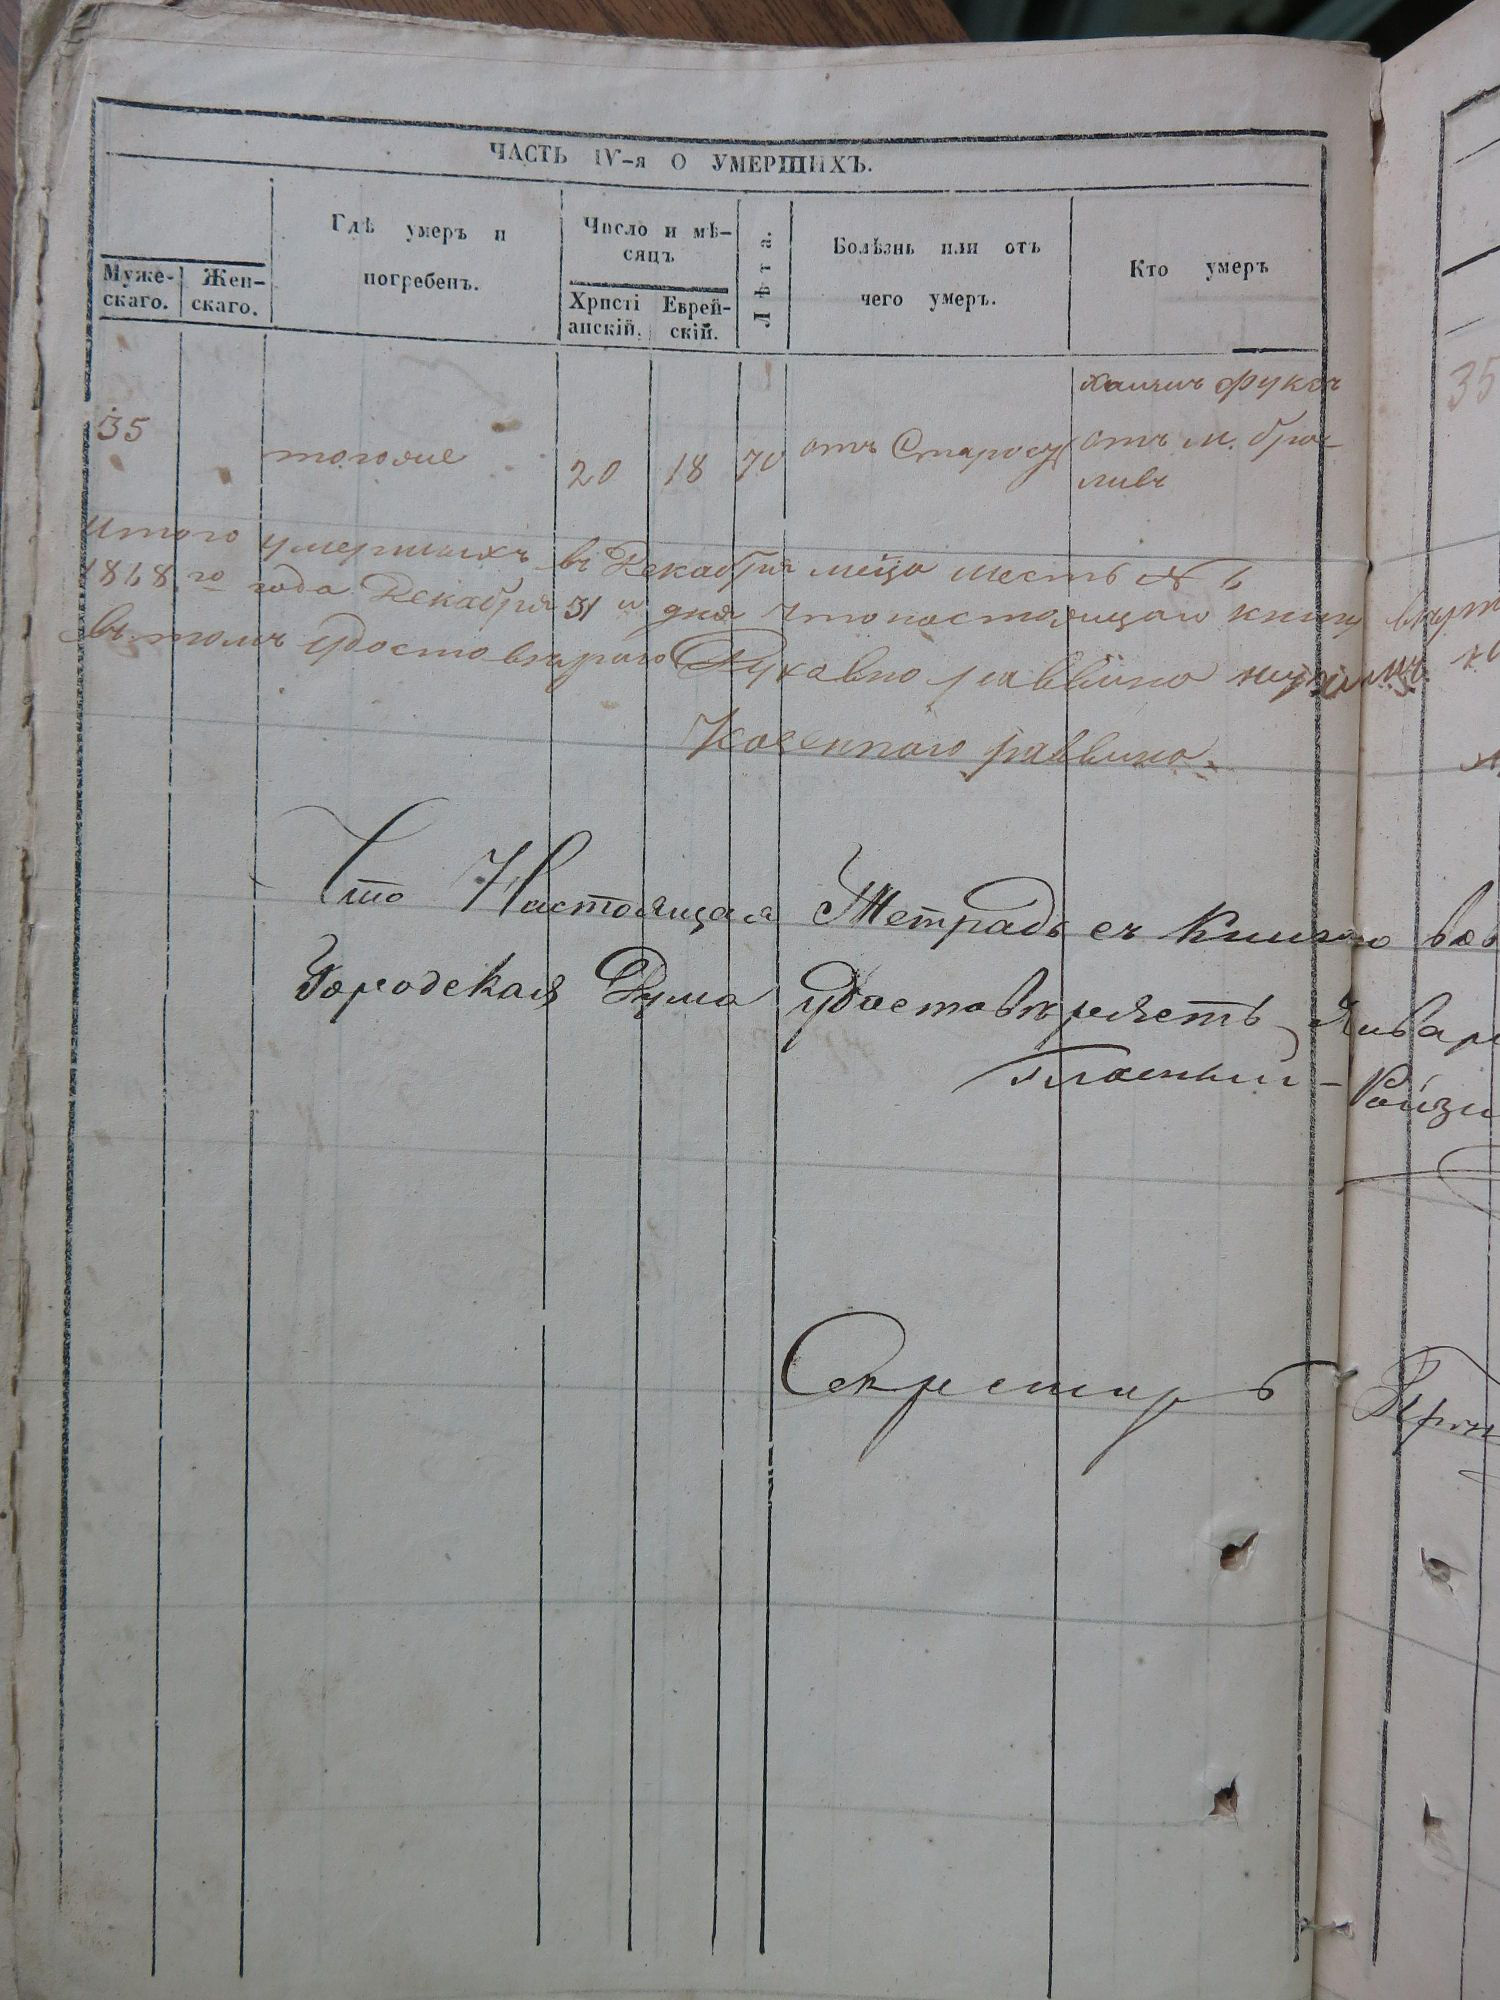 ЧАСТЬ IV-я О УМЕРШИХЪ.
Муже-
скаго.
Жен-
скаго.
Гдѣ умеръ и
погребенъ.
Число и мѣ-
сяцъ
Христі
анскій.
Еврей-
скій.
Лѣта.
Болѣзнь или отъ
чего умеръ.
Кто умеръ
35
тогоже
20
18
70
отъ Старость
Хаимъ Фуксъ
отъ м. Бра-
35
Итого умершихъ въ Декабрѣ мѣца шесть N 6
1868 го года Декабря 31 дня что настоящаго книгу
въ томъ Удостовѣряю раввина
Казеннаго раввина
Что Настоящая Тетрадь съ Книгою
Городская Дума удостовѣряетъ Январ
Гласный -
Секретарь